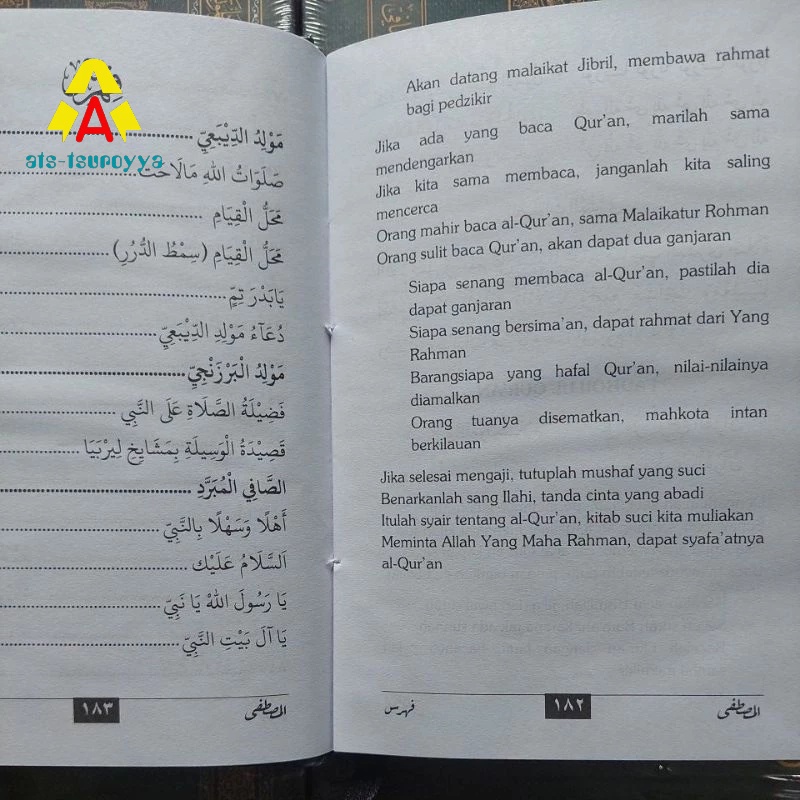 Akan datang malaikat Jibril, membawa rahmat
bagi pedzikir
Jika ada yang baca Qur'an, marilah sama
mendengarkan
Jika kita sama membaca, janganlah kita saling
mencerca
Orang mahir baca al-Qur'an, sama Malaikatur Rohman
Orang sulit baca Qur'an, akan dapat dua ganjaran
Siapa senang membaca al-Qur'an, pastilah dia
dapat ganjaran
Siapa senang bersima'an, dapat rahmat dari Yang
Rahman
Barangsiapa yang hafal Qur'an, nilai-nilainya
diamalkan
Orang tuanya disematkan, mahkota intan
berkilauan
Jika selesai mengaji, tutuplah mushaf yang suci
Benarkanlah sang Ilahi, tanda cinta yang abadi
Itulah syair tentang al-Qur'an, kitab suci kita muliakan
Meminta Allah Yang Maha Rahman, dapat syafa'atnya
al-Qur'an
المصطفى ١٨٢ فهرس
ats-tsuroyya
مَوْلِدُ الدِّيْبَعِيّ
صَلَوَاتُ اللهِ مَالَاحَتْ
مَحَلُّ الْقِيَامِ
مَحَلُّ الْقِيَامِ (سِمْطُ الدُّرَرِ)
يَابَدْرَ تِمٍّ
دُعَآءُ مَوْلِدِ الدِّيْبَعِيّ
مَوْلِدُ الْبَرْزَنْجِيّ
فَضِيْلَةُ الصَّلَاةِ عَلَى النَّبِي
قَصِيْدَةُ الْوَسِيْلَةِ بِمَشَايِخِ لِيْرْبَيَا
الصَّافِي الْمُبَرَّدِ
أَهْلًا وَسَهْلًا بِالنَّبِيّ
اَلسَّلَامُ عَلَيْك
يَا رَسُولَ اللهْ يَا نَبِيّ
يَا آلَ بَيْتِ النَّبِيّ
المصطفى ١٨٣